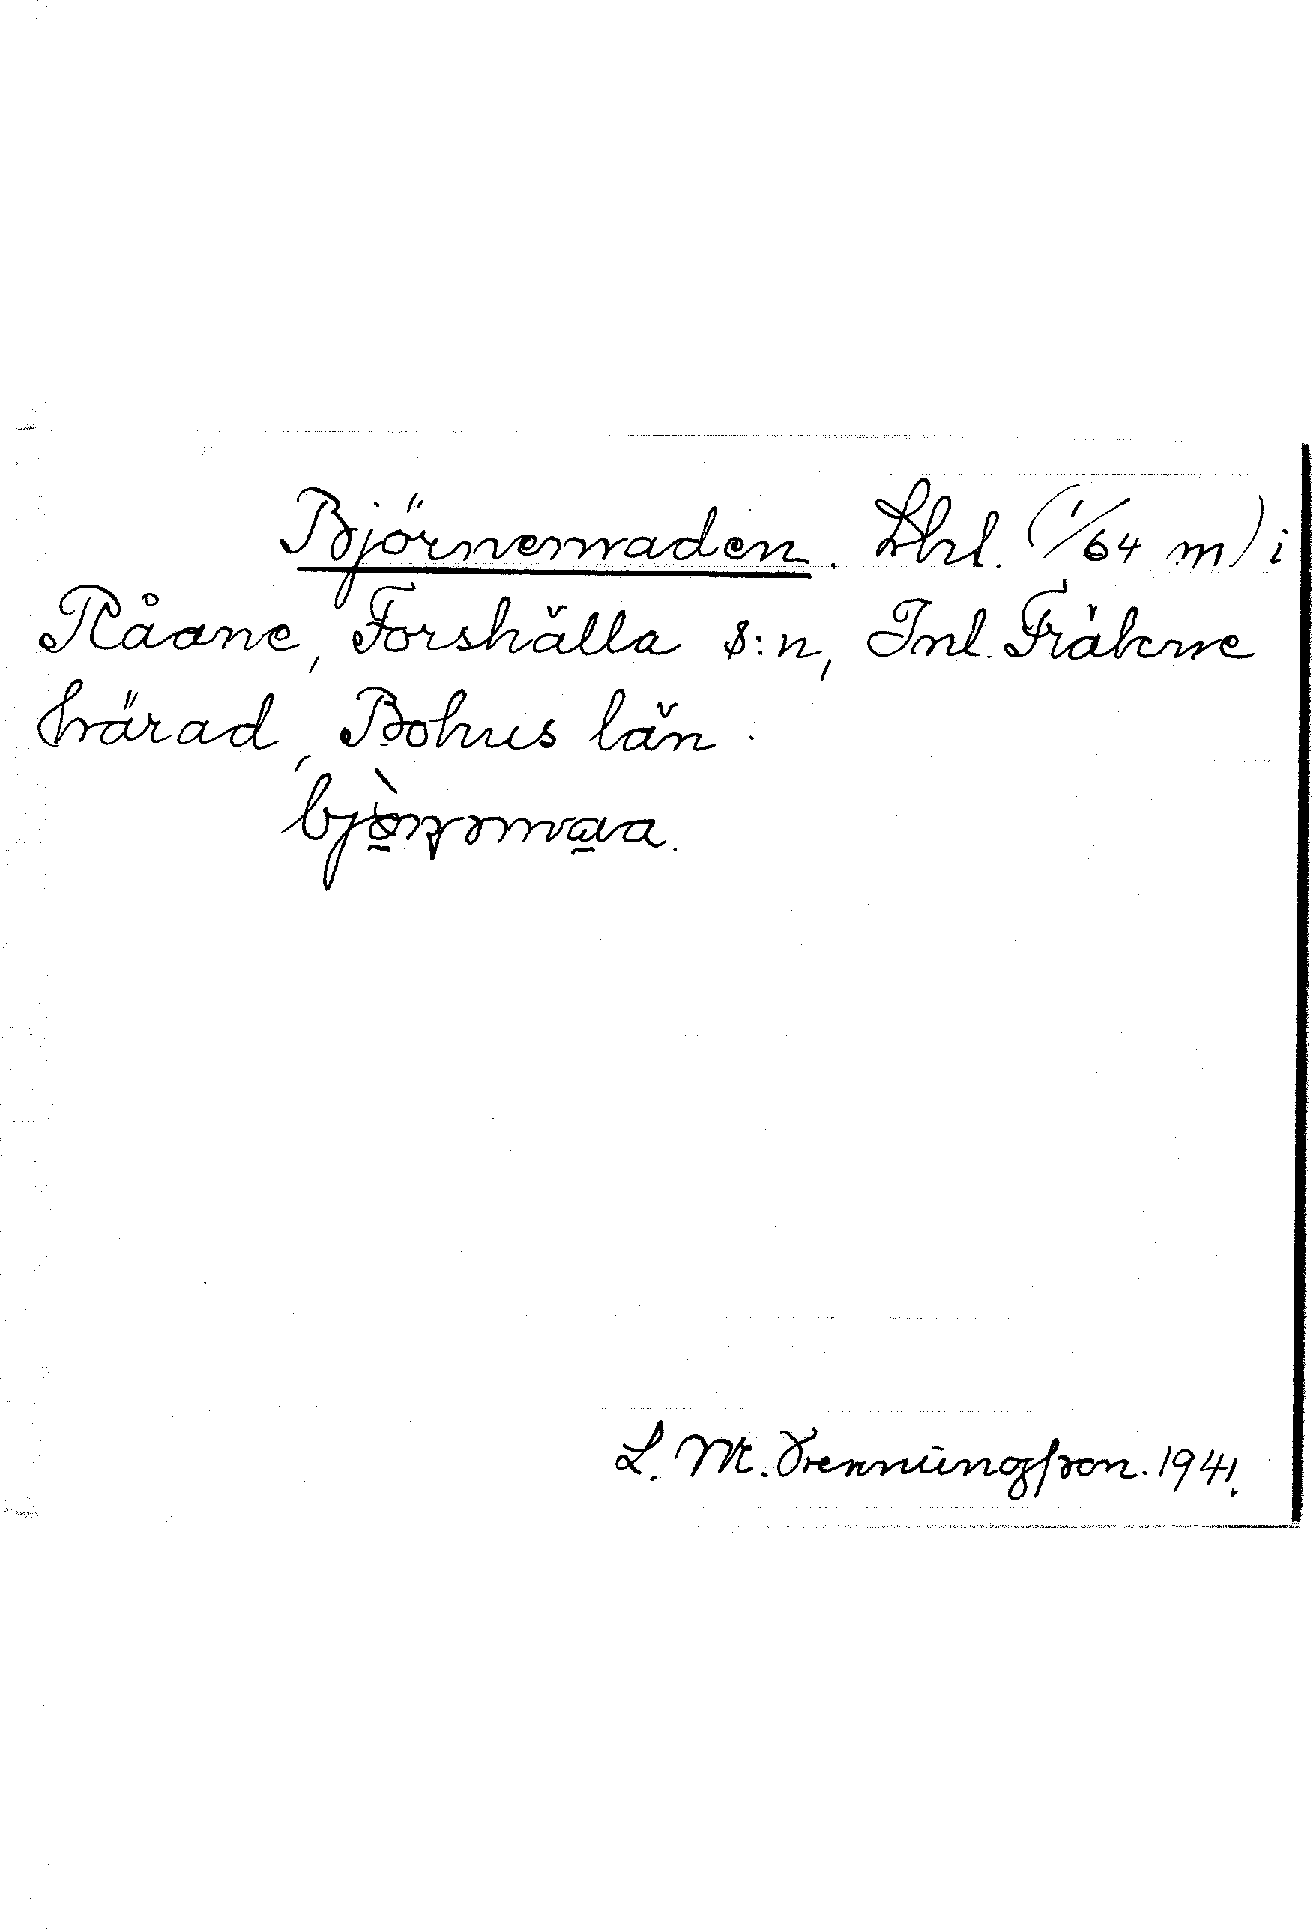 Björnemaden. Lhl. (1/64 m) i
Råane, Forshälla s:n, Inl. Fräkne
härad, Bohus län.
L. M. Svenningsson. 1941.